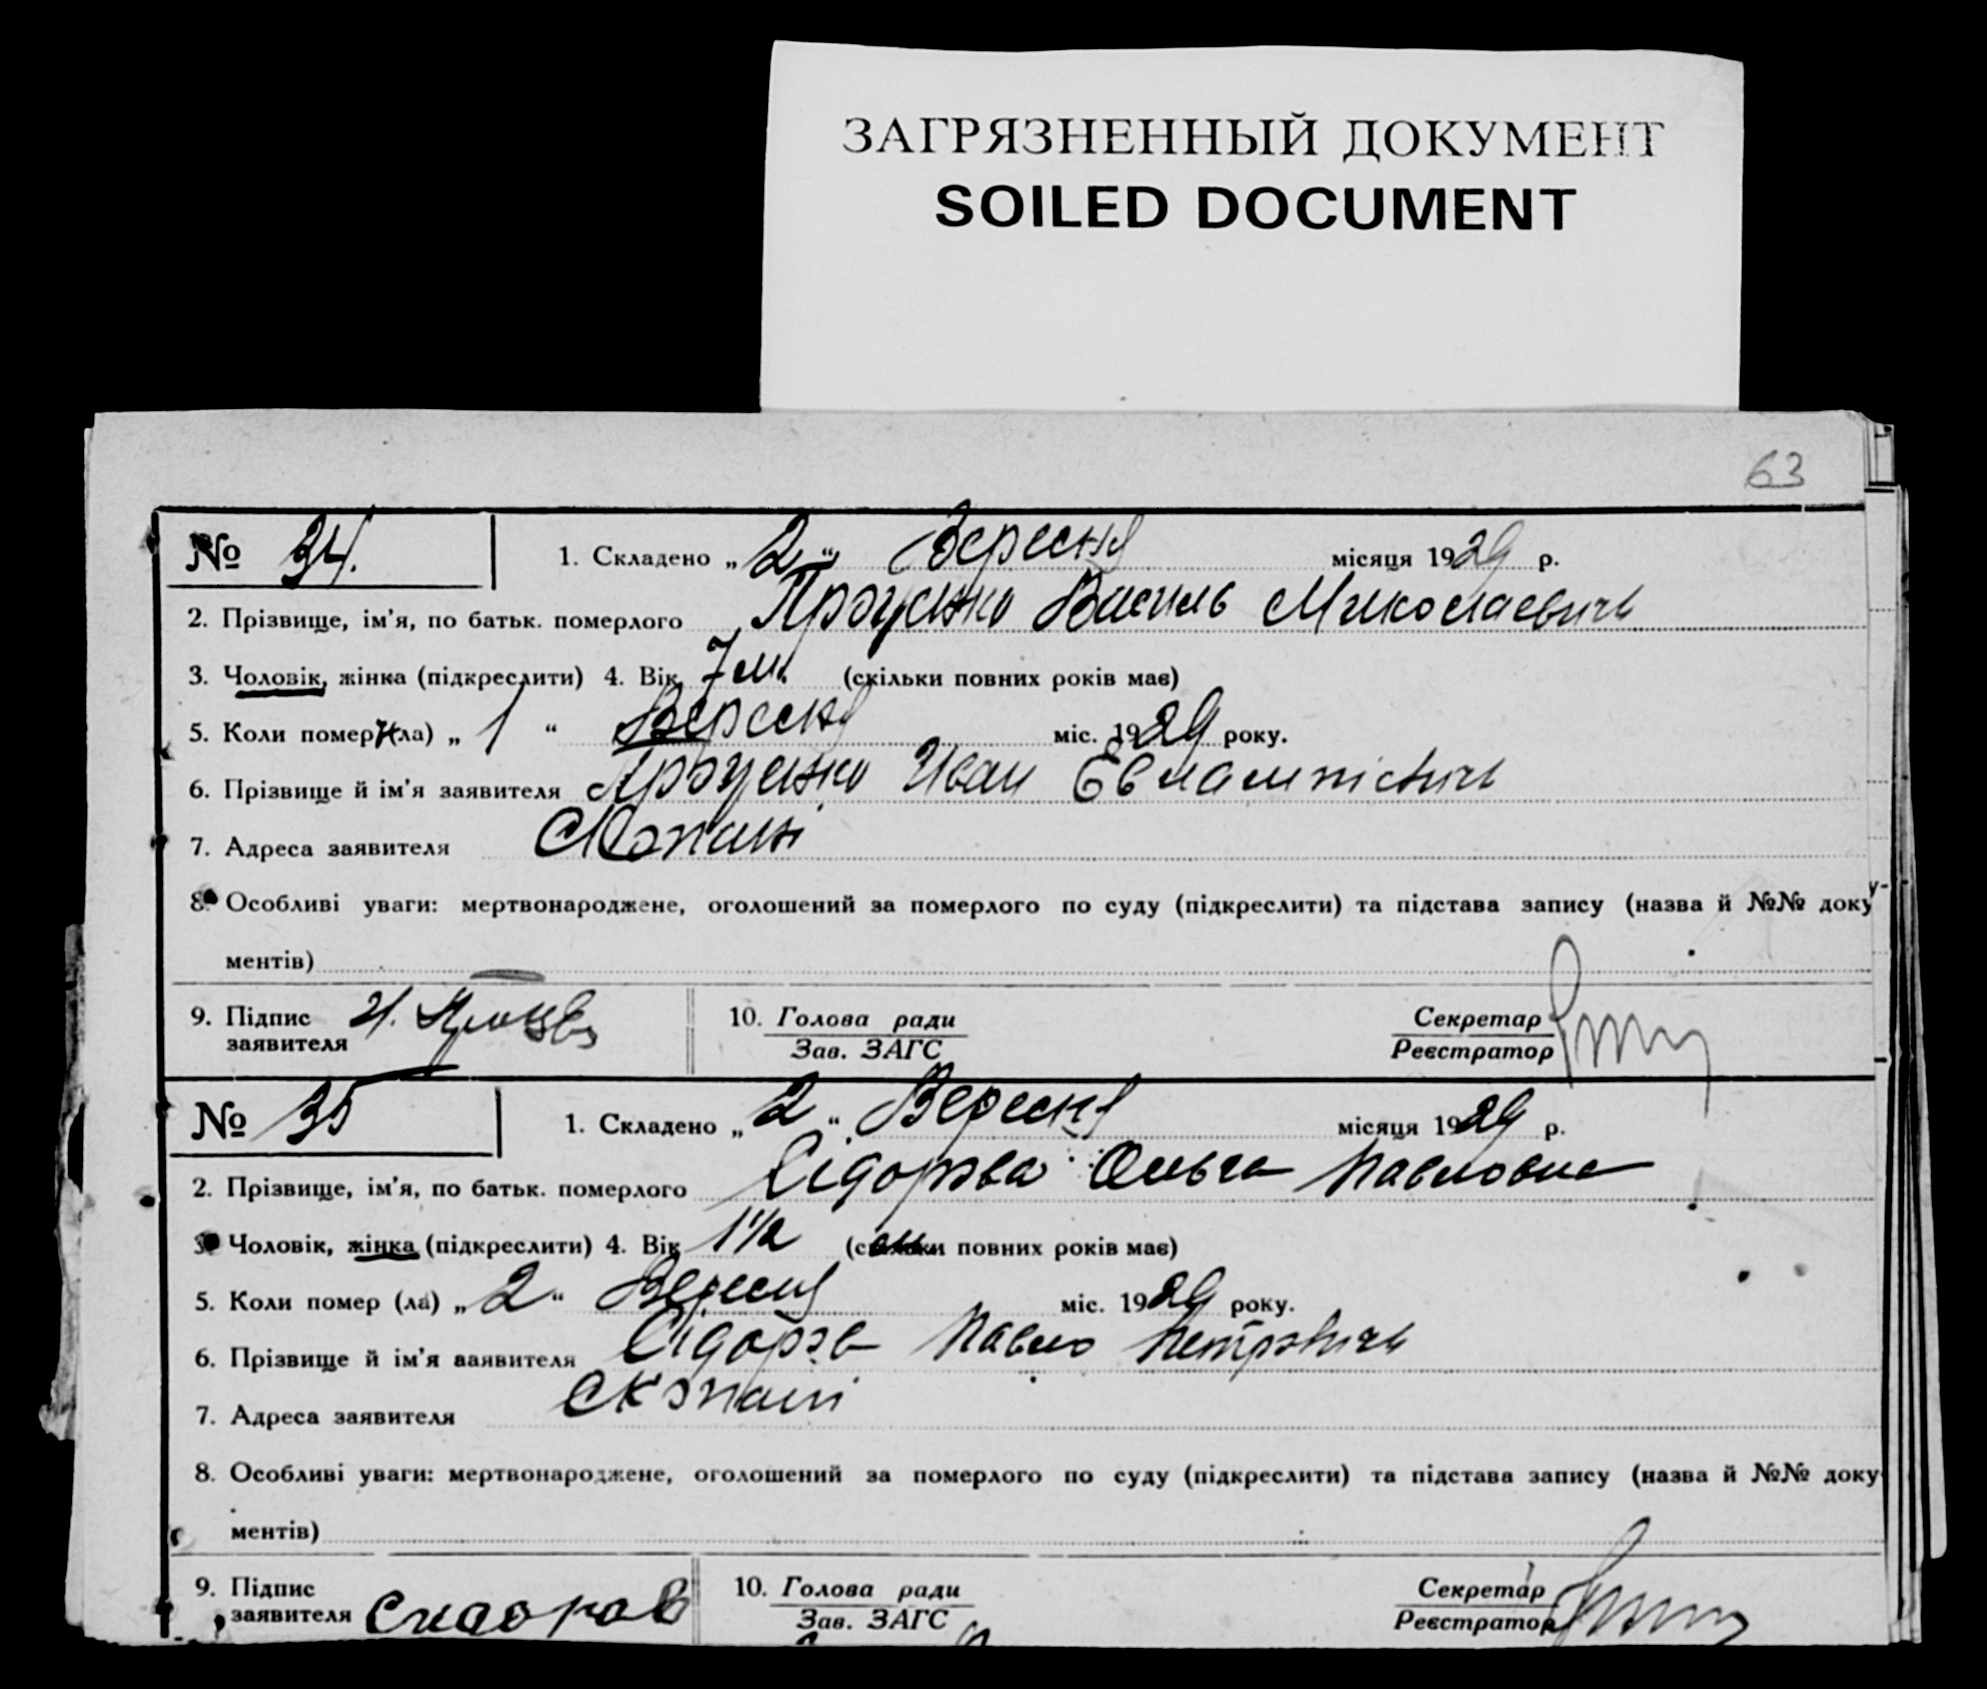 ЗАГРЯЗНЕННЫЙ ДОКУМЕНТ
SOILED DOCUMENT
63
№ 34.
1. Складено „2“ Вересня місяця 1929 р.
2. Прізвище, ім'я, по батьк. померлого Василь Миколаевичь
3. Чоловік, жінка (підкреслити) 4. Вік 7 м. (скільки повних років має)
5. Коли помер (ла) „1“ Вересня міс. 1929 року.
6. Прізвище й ім'я заявителя Иван
7. Адреса заявителя
8. Особливі уваги: мертвонароджене, оголошений за померлого по суду (підкреслити) та підстава запису (назва й №№ доку-
ментів)
9. Підпис заявителя
10. Голова ради
Зав. ЗАГС
Секретар
Реєстратор
№ 35
1. Складено „2“ Вересня місяця 1929 р.
2. Прізвище, ім'я, по батьк. померлого Сідорова Ольга Павловна
3. Чоловік, жінка (підкреслити) 4. Вік 1½ повних років має)
5. Коли помер (ла) „2“ Вересня міс. 1929 року.
6. Прізвище й ім'я заявителя Сідоров Павло Петровичь
7. Адреса заявителя Скопані
8. Особливі уваги: мертвонароджене, оголошений за померлого по суду (підкреслити) та підстава запису (назва й №№ доку
ментів)
9. Підпис заявителя Сидоров
10. Голова ради
Зав. ЗАГС
Секретар
Реєстратор